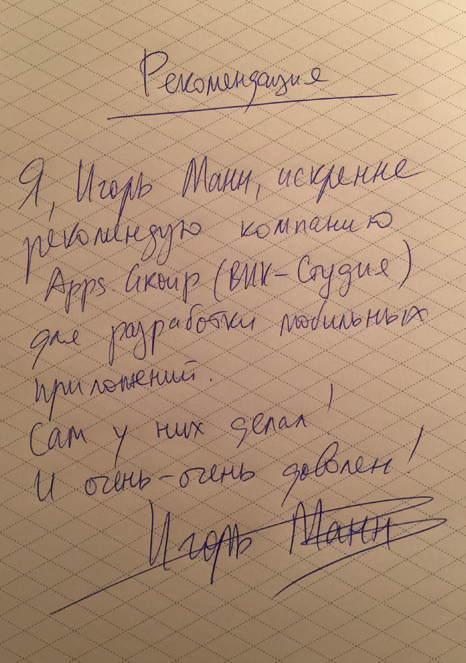 Рекомендация
Я, Игорь Манн, искренне
рекомендую компанию
Apps Group (ВИК-Студия)
для разработки мобильных
приложений.
Сам у них делал!
И очень-очень доволен!
Игорь Манн